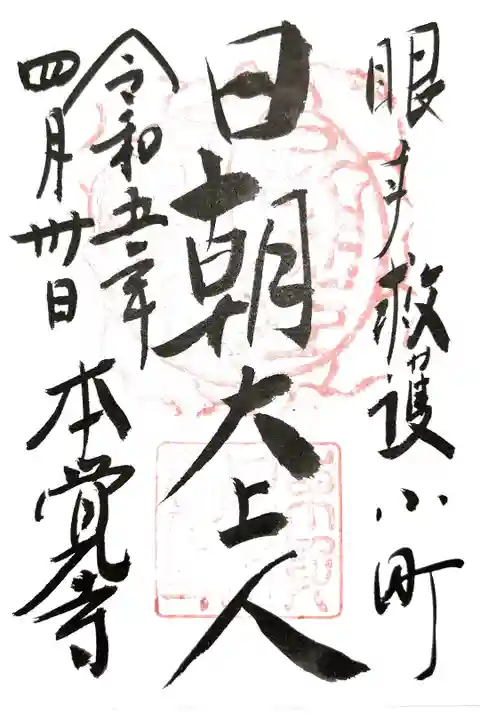 眼救護小町
日朝大上人
令和五年
四月卅日 本覚寺